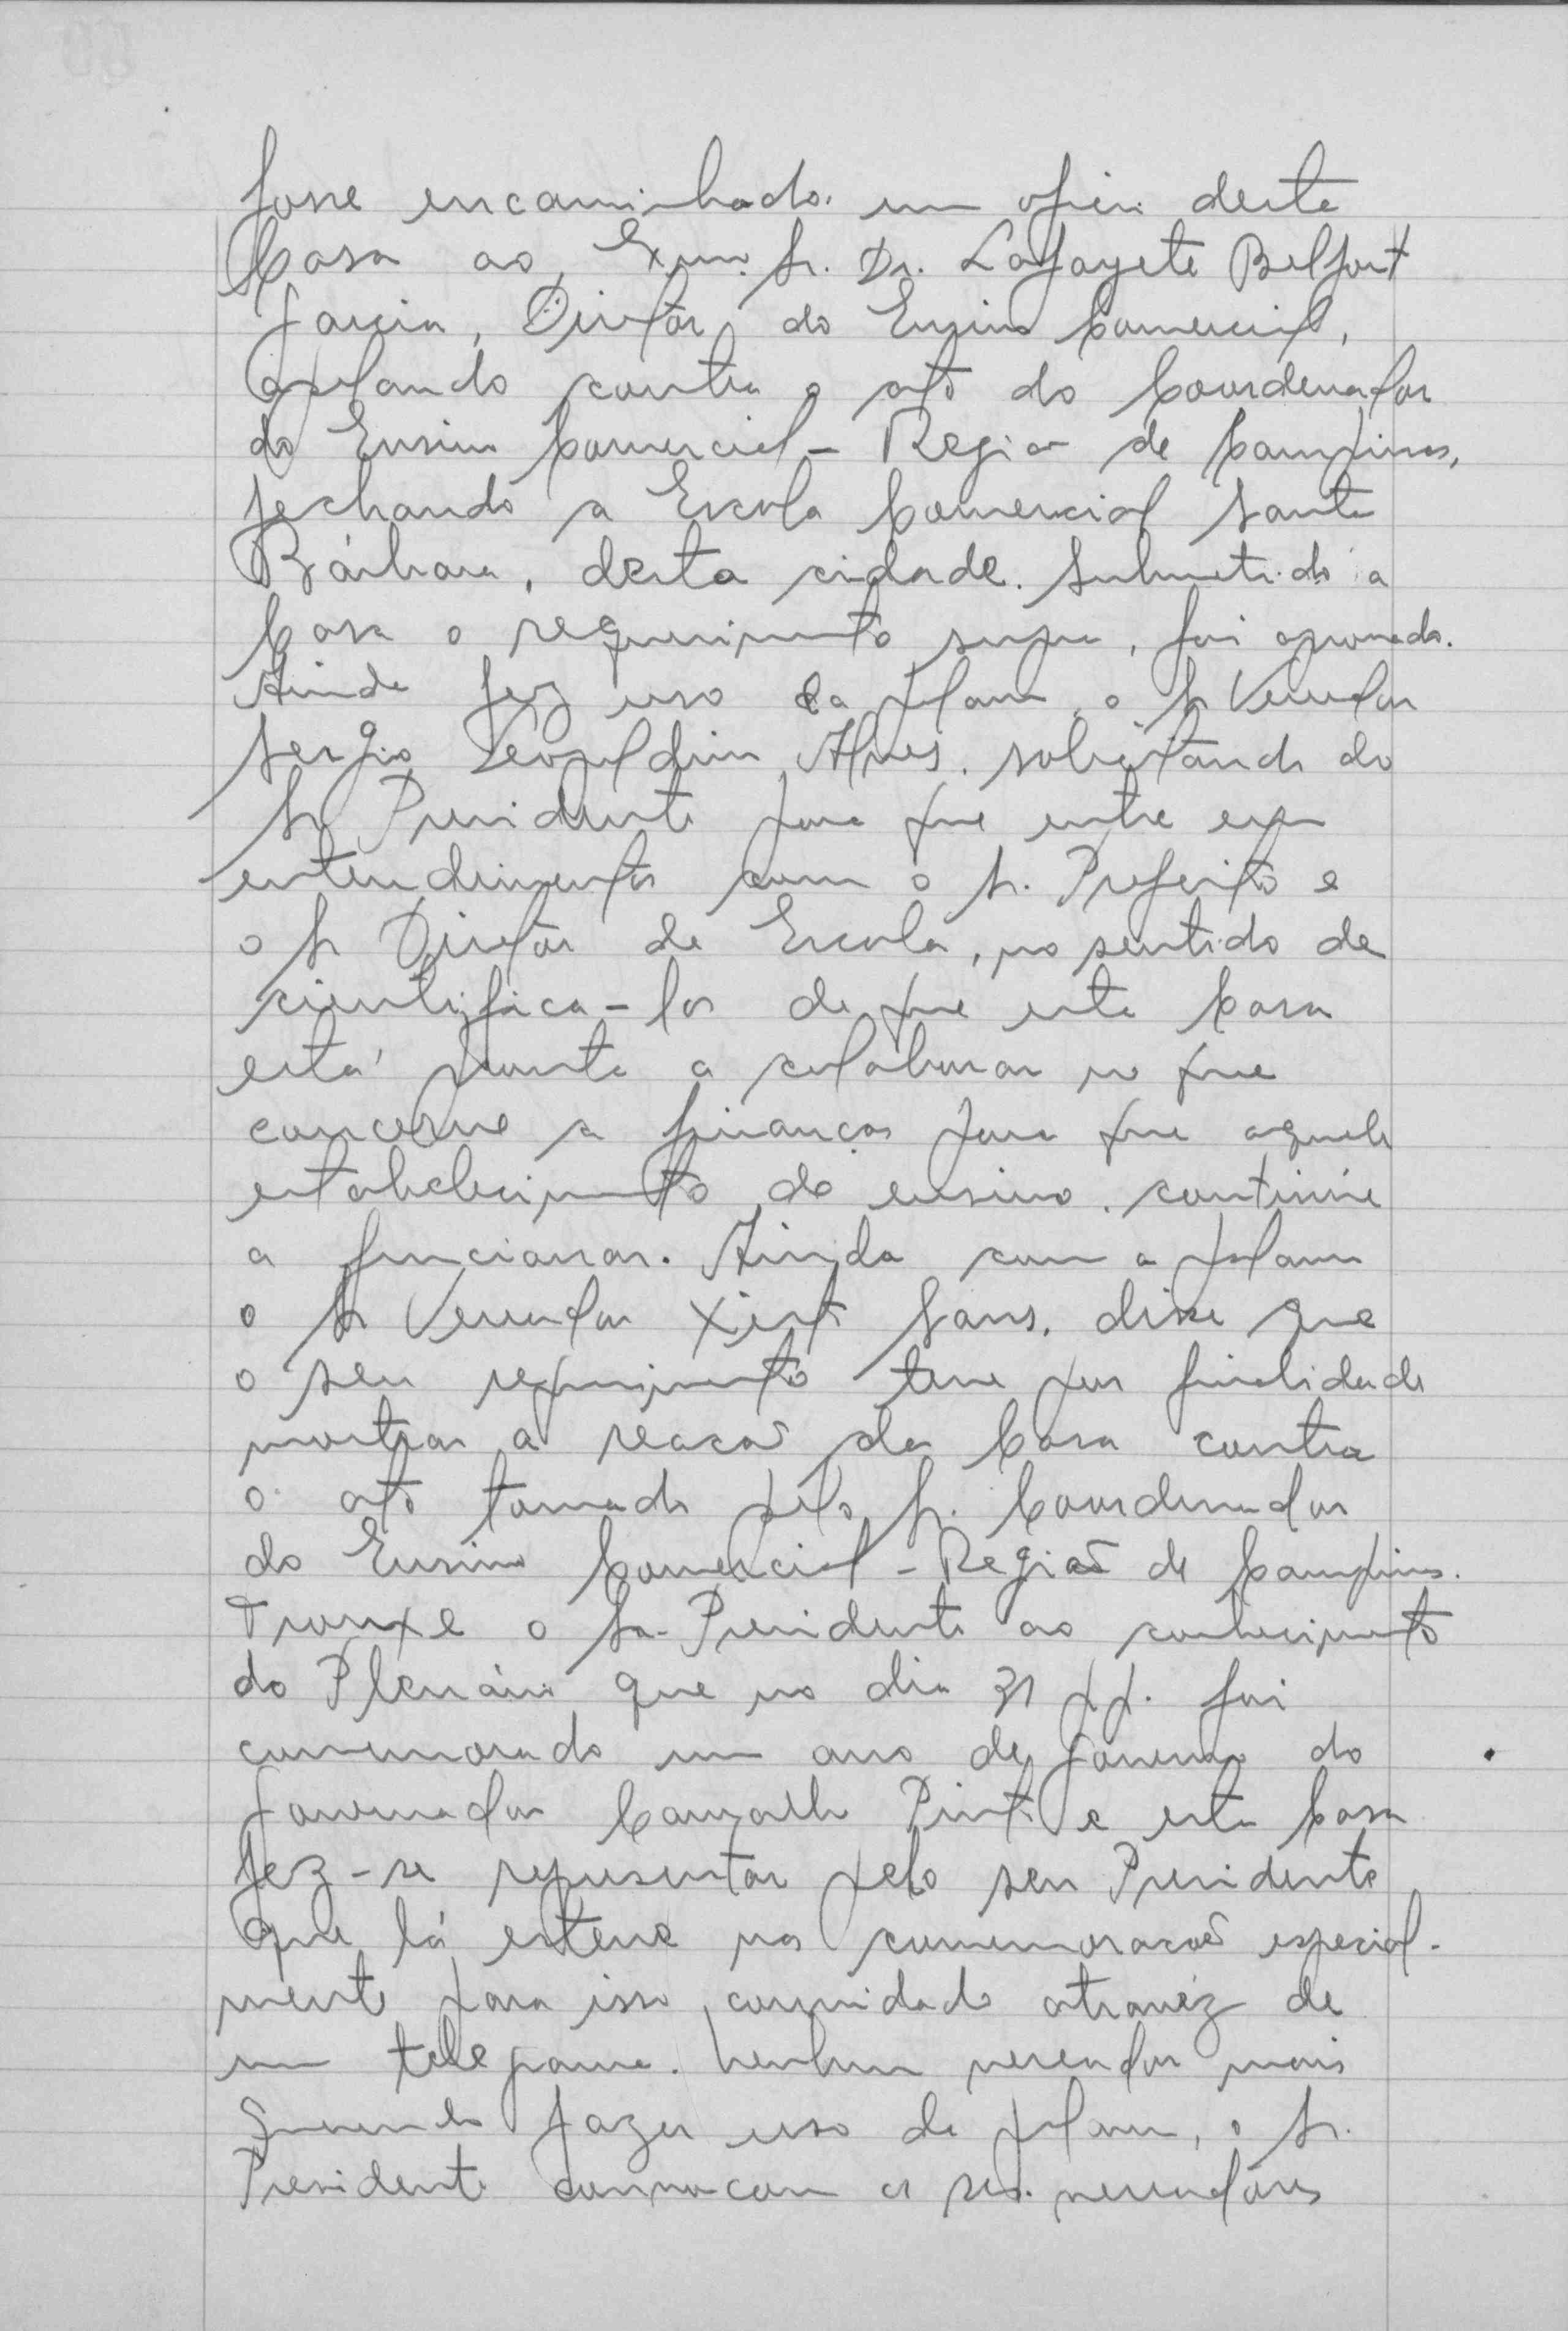 fosse encaminhado um oficio desta
Casa ao Exmo. Sr. Dr. Lafayete Belfort
Garcia, Diretor do Ensino Comercial,
apelando contra o ato do Coordenador
do Ensino Comercial - Região de Campinas,
fechando a Escola Comercial Santa
Bárbara, desta cidade. Submetido a
Casa o requerimento supra, foi aprovado.
Ainda fez uso da palavra o Sr Vereador
Sergio Leopoldino Alves, solicitando do
Sr Presidente para que entre em
entendimentos com o Sr. Prefeito e
o Sr Diretor da Escola, no sentido de
cientifica-los de que esta Casa
está pronta a colaborar no que
concerne a finanças para que aquele
estabelecimento de ensino continúe
a funcionar. Ainda com a palavra
o Sr Vereador Sans, disse que
o seu requerimento teve por finalidade
mostrar a reacão da Casa contra
o ato tomado pelo Sr. Coordenador
do Ensino Comercial - Região de Campinas.
Trouxe o Sr. Presidente ao conhecimento
do Plenário que no dia 31 pp. foi
comemorado um ano de Governo do
Governador Carvalho Pinto e esta Casa
fez-se representar pelo seu Presidente
que lá esteve na comemoracão especial-
mente para isso convidado atravéz de
um telegrama. Nenhum vereador mais
querendo fazer uso da palavra, o Sr.
Presidente convocou os srs. vereadores